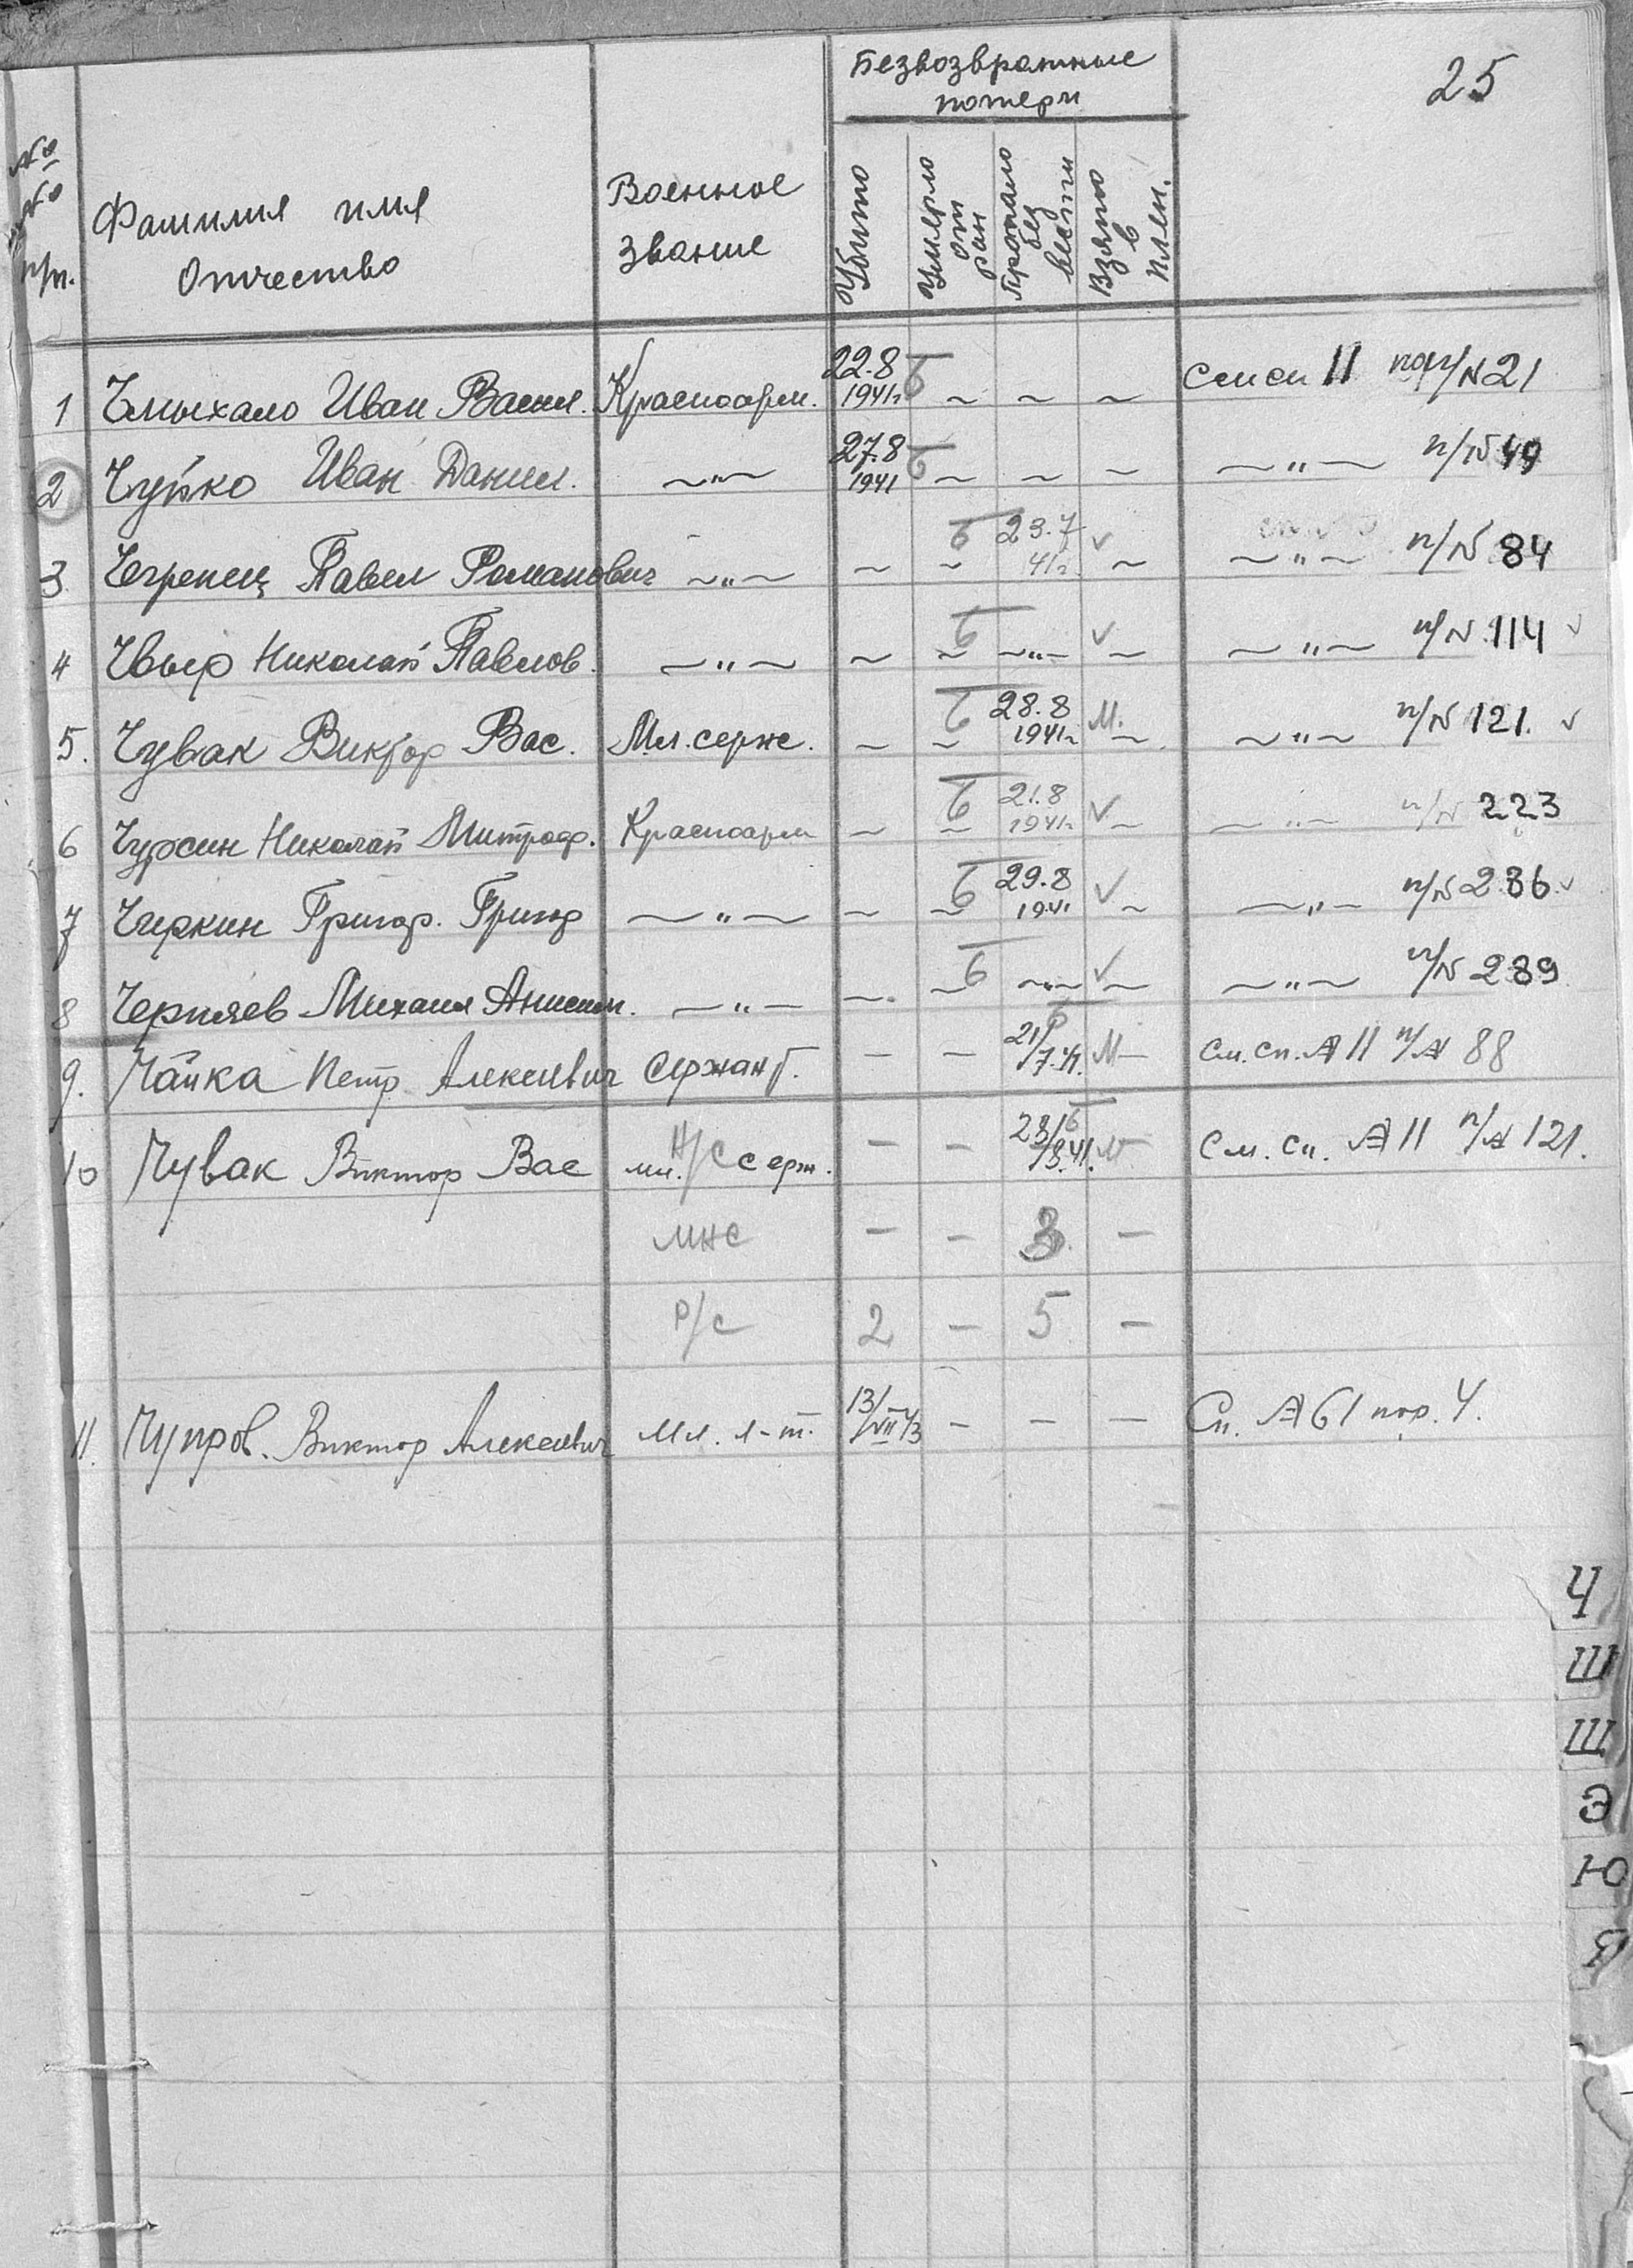 25
Безвозвратные
потери
№
№
п/п.
Фамилия имя
Отчество
Военное
звание
Убито
Умерло
от
ран
Пропало
без
вести
Взято
в
плен.
1 Чмыхало Иван Васил. Красноарм. 22.8 1941г Б ~ ~ ~ см сп 11 пор/N21
2 Чуйко Иван Данил. —"— 27.8 1941 Б ~ ~ ~ —"— п/N 49
3 Павел Романович —"— ~ ~ Б 23.7 41г. ✓ ~ —"— п/N 84
4 Чвыр Николай Павлов. —"— ~ ~ Б —"— ✓ ~ —"— п/N 114 ✓
5. Чувак Виктор Вас. Мл. серж. ~ ~ Б 28.8 1941г М. ~ —"— п/N 121. ✓
6 Чурсин Николай Митроф. Красноарм ~ ~ Б 21.8 1941г ✓ ~ —"— п/N 223
7 Чиркин Григор. Григор —"— ~ ~ Б 29.8 1941 ✓ ~ —"— п/N 286 ✓
8 Черняев Михаил Анисим. —"— ~ ~ Б —"— ✓ ~ —"— п/N 289
9. Чайка Петр Алексеевич Сержант. — — 21/7.41. Б М — см. сп. № 11 п/№ 88
10 Чувак Виктор Вас Н/С мл. серж. — — 28/8.41. Б См. сп. № 11 п/№ 121.
МНС — — 3 —
Р/С 2 — 5 —
11. Чупров. Виктор Алексеевич Мл. л-т. 13/VII 43 — — — Сп. № 61 пор. 4.
Ч
Ш
Щ
Э
Ю
Я